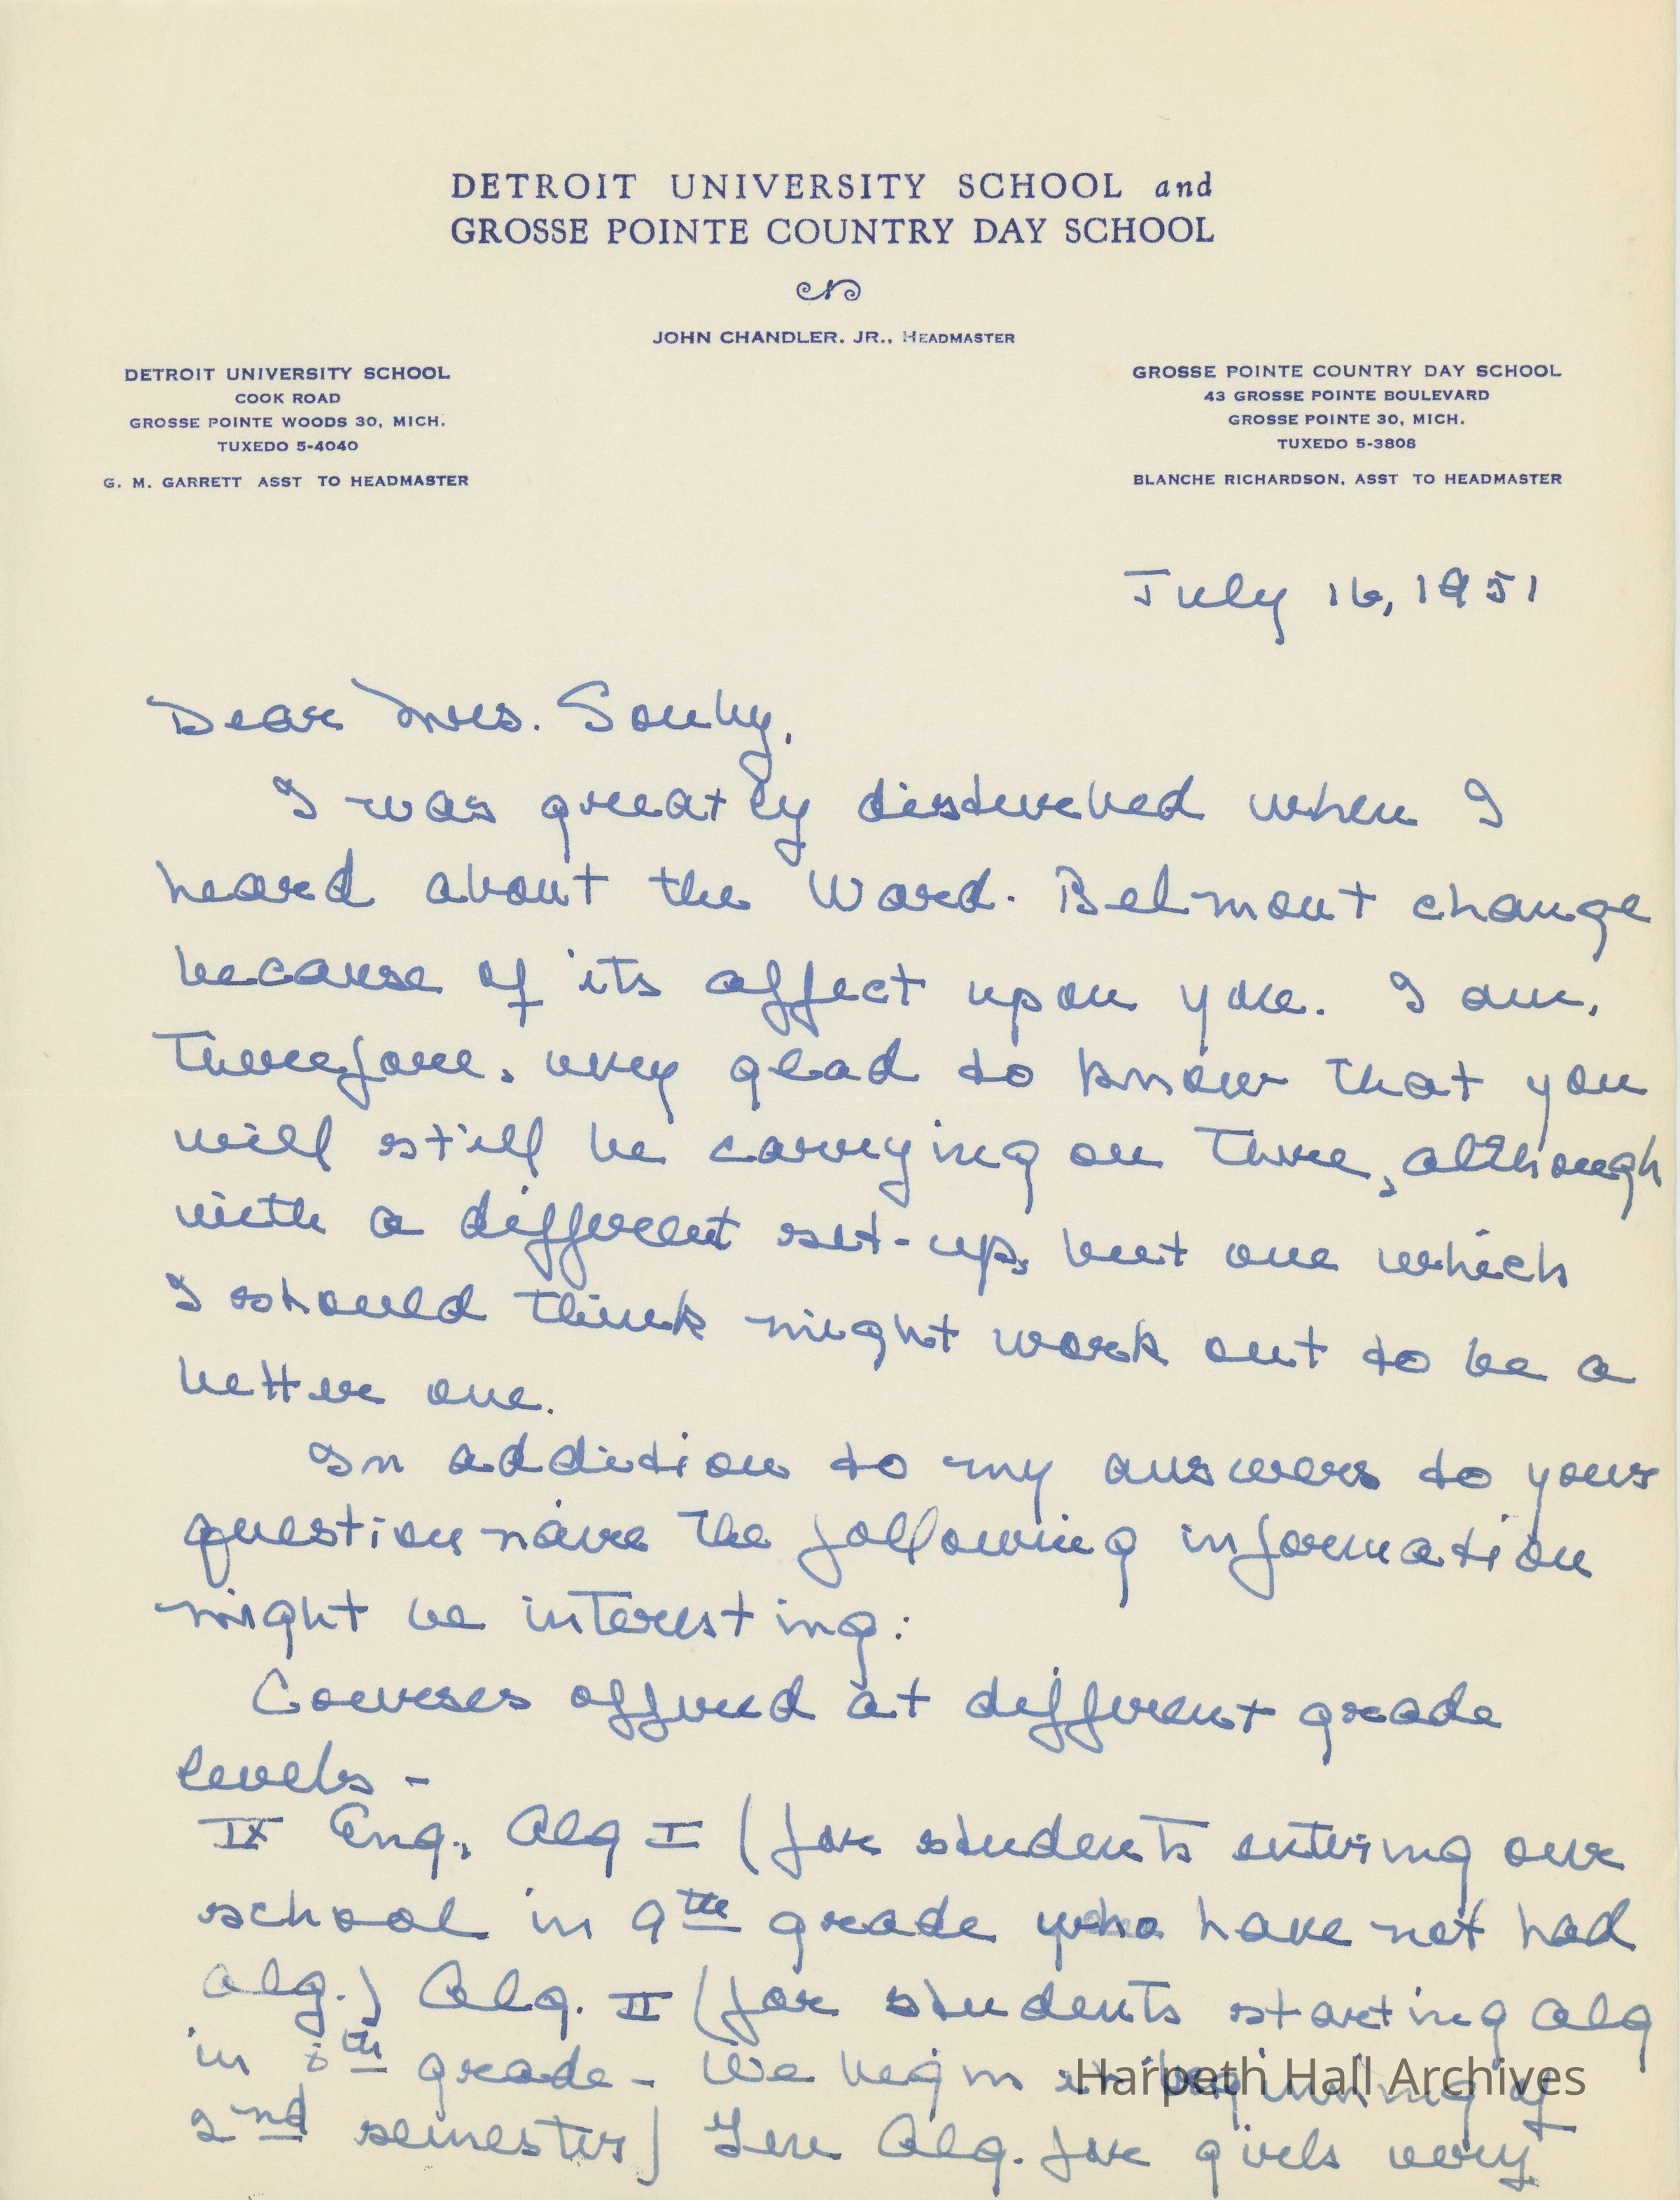 DETROIT UNIVERSITY SCHOOL and
GROSSE POINTE COUNTRY DAY SCHOOL
JOHN CHANDLER, JR., HEADMASTER
DETROIT UNIVERSITY SCHOOL
COOK ROAD
GROSSE POINTE WOODS 30, MICH.
TUXEDO 5-4040
G. M. GARRETT ASST TO HEADMASTER
GROSSE POINTE COUNTRY DAY SCHOOL
43 GROSSE POINTE BOULEVARD
GROSSE POINTE 30, MICH.
TUXEDO 5-3808
BLANCHE RICHARDSON, ASST TO HEADMASTER
July 16, 1951
Dear Mrs. Souby,
I was greatly disturbed when I
heard about the Ward-Belmont change
because of its affect upon you. I am,
therefore, very glad to know that you
will still be carrying on there, although
with a different set-up, but one which
I should think might work out to be a
better one.
In addition to my answers to your
questionnaire the following information
might be interesting:
Courses offered at different grade
levels -
IX Eng., Alg I (for students entering our
school in 9th grade who have not had
alg.) Alg. II (for students starting alg
in 8th grade - We begin it beginning of
2nd semester) Gen Alg. for girls very
Harpeth Hall Archives